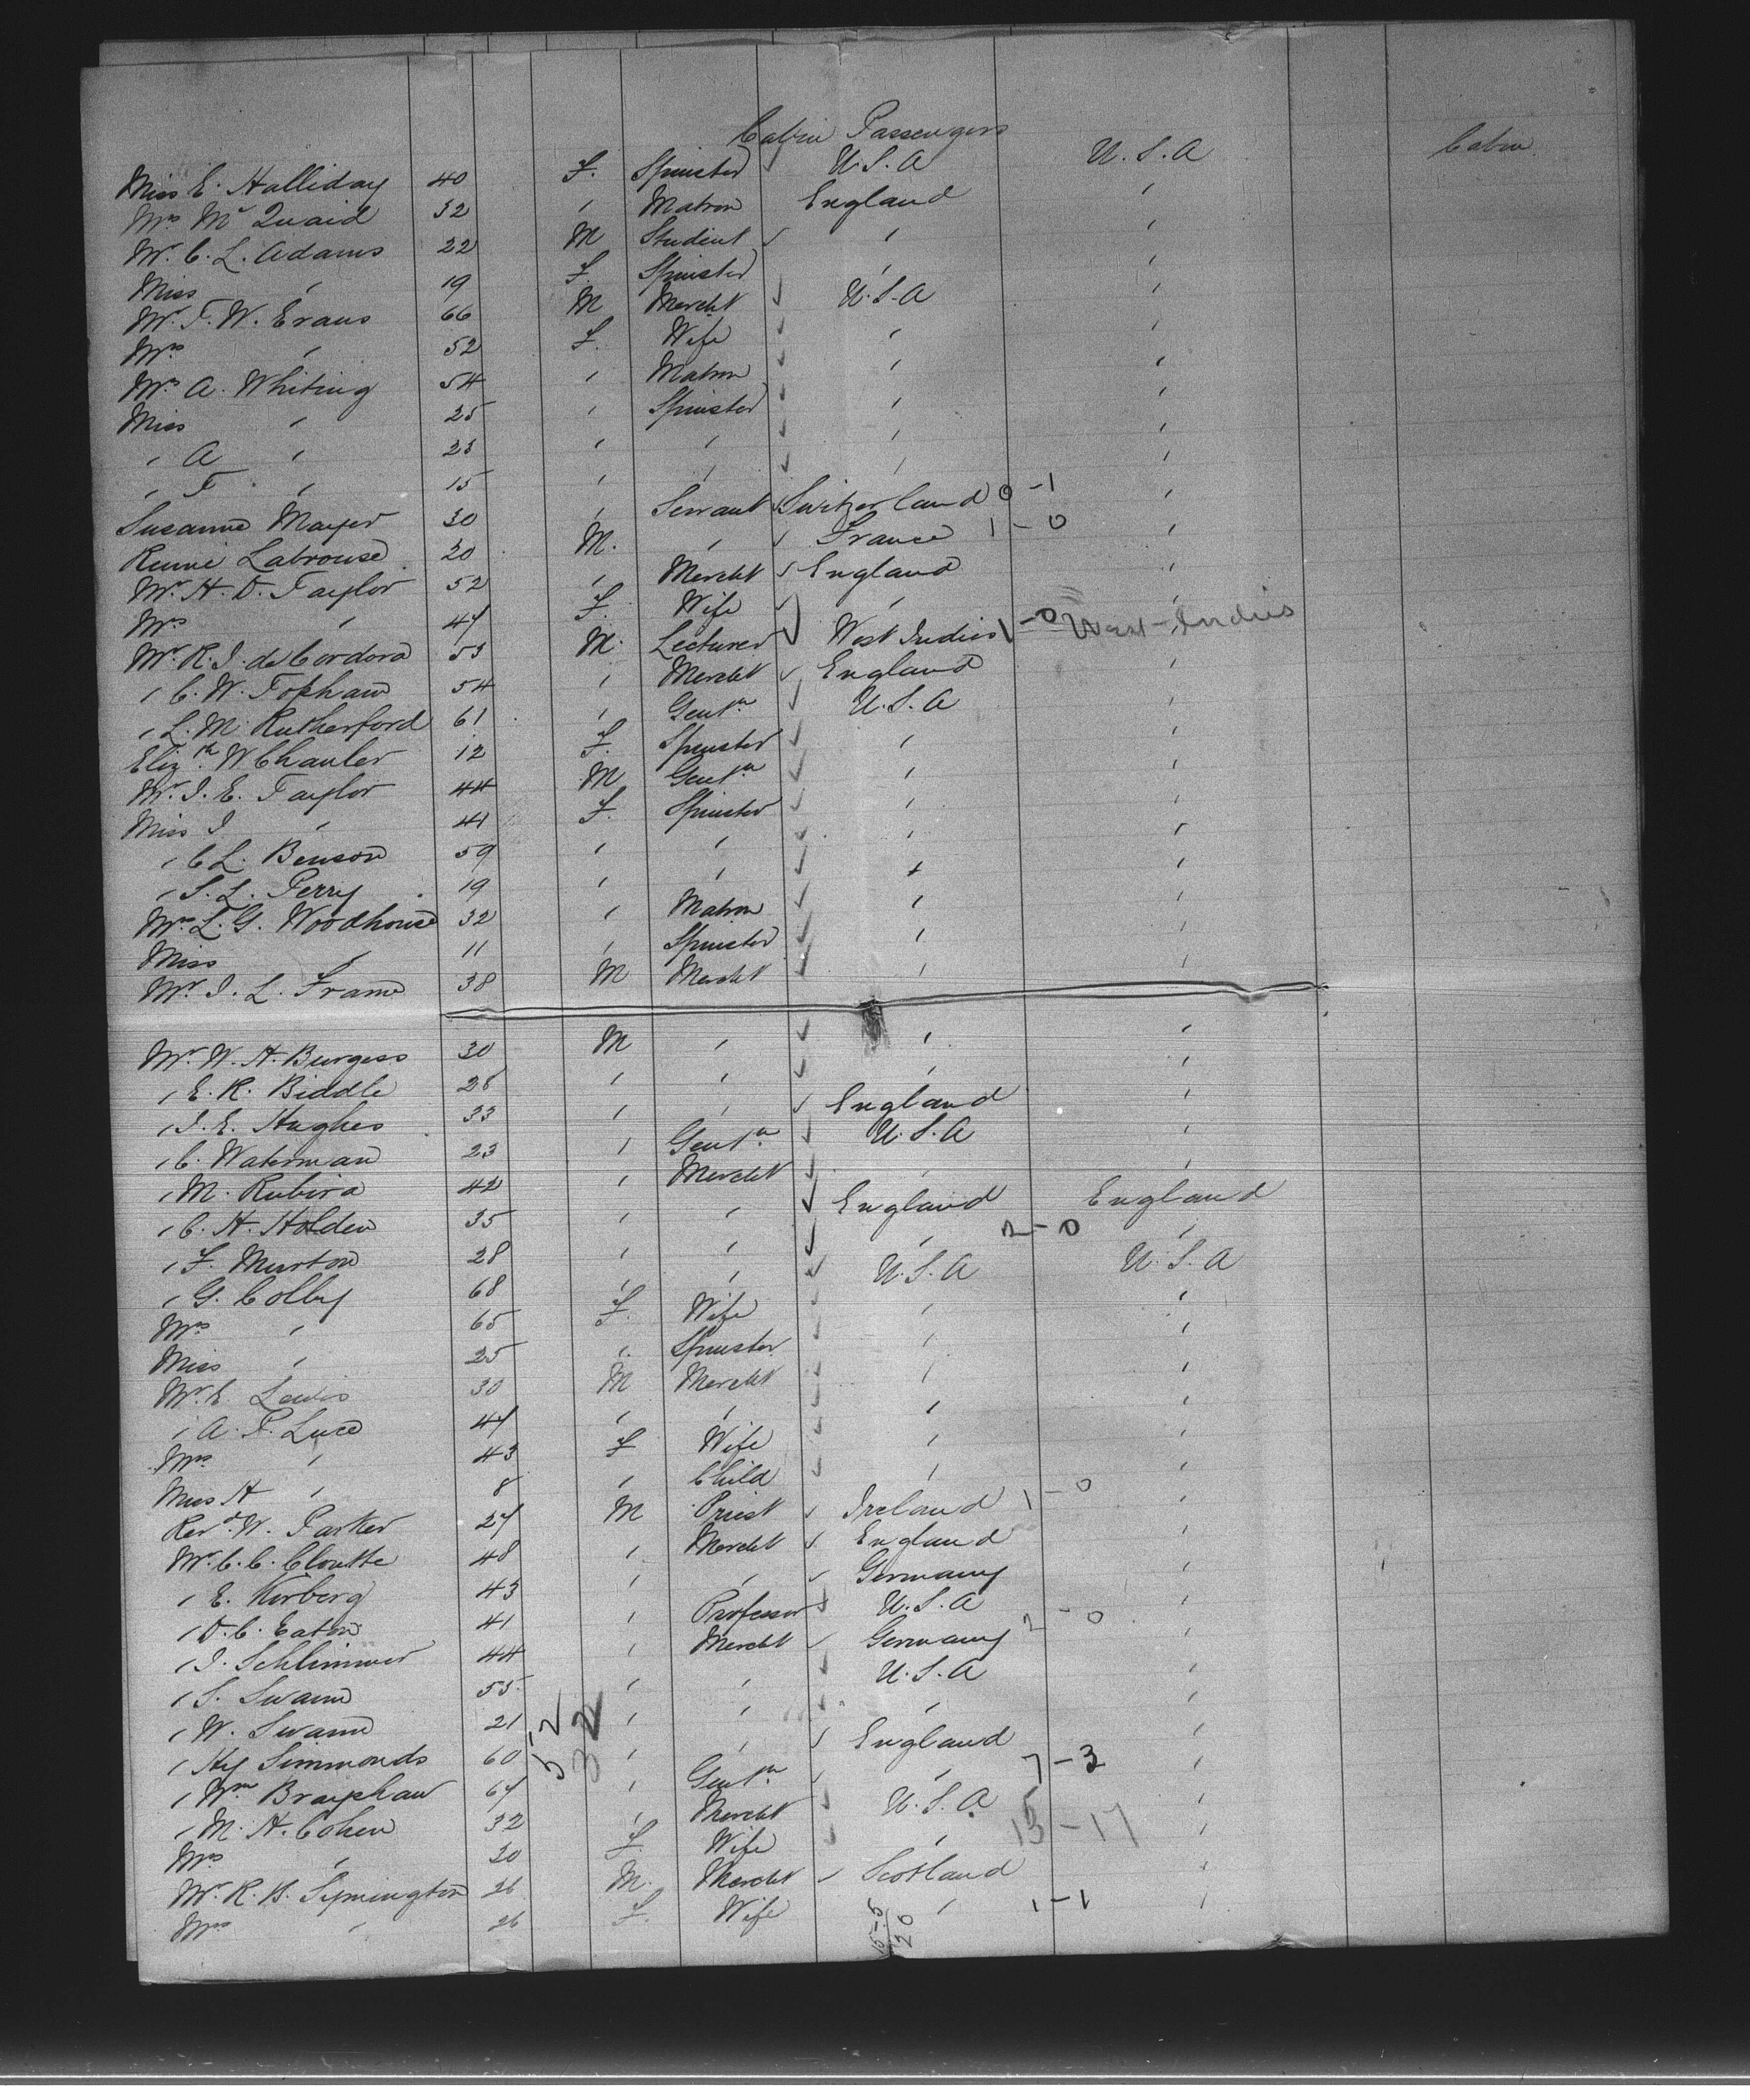 Cabin Passengers
Miss E. Halliday 40 F. Spinster U.S.A U.S.A Cabin
Mrs Mc Quaid 32 " Matron England "
Mr. C. L. Adams 22 M Student " "
Miss " 19 F. Spinster " "
Mr. T. W. Evans 66 M Mercht U.S.A "
Mrs " 52 F. Wife " "
Mrs A. Whiting 54 " Matron " "
Miss " 25 " Spinster " "
" A " 23 " " " "
" F " 15 " " " "
Susanne Mayer 30 " Servant Switzerland 0-1 "
Labrouse 20 M. " France 1-0 "
Mr. H. D. Taylor 52 " Mercht England "
Mrs " 47 F. Wife " "
Mr. R. J. de Cordova 53 M. Lecturer West Indies 1-0 West-Indies
" C. W. Topham 54 " Mercht England "
" L. M. Rutherford 61 " Gentn U.S.A "
Elizth W Chanler 12 F. Spinster " "
Mr. J. E. Taylor 44 M Gentn " "
Miss J " 41 F. Spinster " "
" C L. Benson 59 " " " "
" S. L. Perry 19 " " " "
Mrs L. G. Woodhouse 32 " Matron " "
Miss " 11 " Spinster " "
Mr. J. L. Frame 38 M Mercht " "
Mr. W. H. Burgess 30 M " " "
" E. R. Biddle 28 " " " "
" J. E. Hughes 33 " " England "
" C. Waterman 23 " Gentn U.S.A "
" M. Rubira 42 " Mercht " "
" C. H. Holden 35 " " England England
" F. Murton 28 " " " 2-0 "
" G. Colby 68 " " U.S.A U.S.A
Mrs " 65 F. Wife " "
Miss " 25 " Spinster " "
Mr. E. Lewis 30 M Mercht " "
" A. F. Luce 47 " " " "
Mrs " 43 F Wife " "
Miss H " 8 " Child " "
Revd. W. Parker 27 M Priest Ireland 1-0 "
Mr. C. C. Cloutte 48 " Mercht England "
" E. Kirberg 43 " " Germany "
" D. C. Eaton 41 " Professor U.S.A "
" J. Schlimmer 44 " Mercht Germany 2-0 "
" S. Swann 55 " " U.S.A "
" W. Swann 21 " " " "
" Hy Simmonds 60 52 32 " " England "
" Wm Brayshaw 67 " Gentn " 7-3 "
" M. H. Cohen 32 " Mercht U.S.A "
Mrs " 30 F. Wife " 15-17 "
Mr. R. B. Symington 26 M. Mercht Scotland "
Mrs " 26 F. Wife " 1-1 "
15-5
20